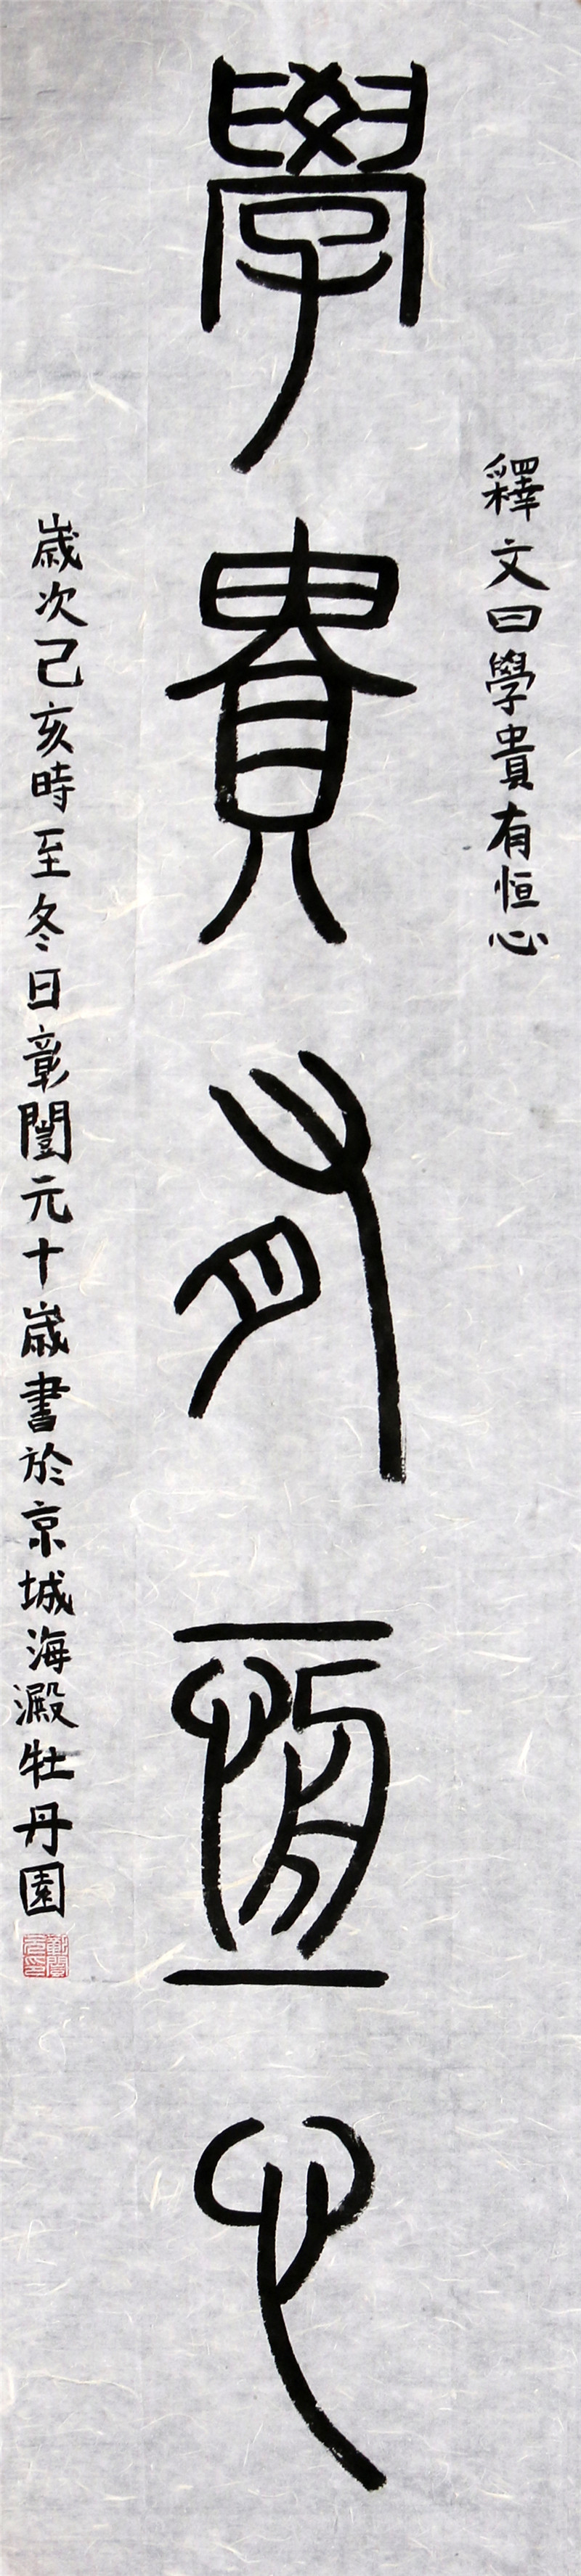 釋文曰學貴有恒心
學貴有恆心
歲次己亥時至冬日章閶元十歲書於京城海澱牡丹園